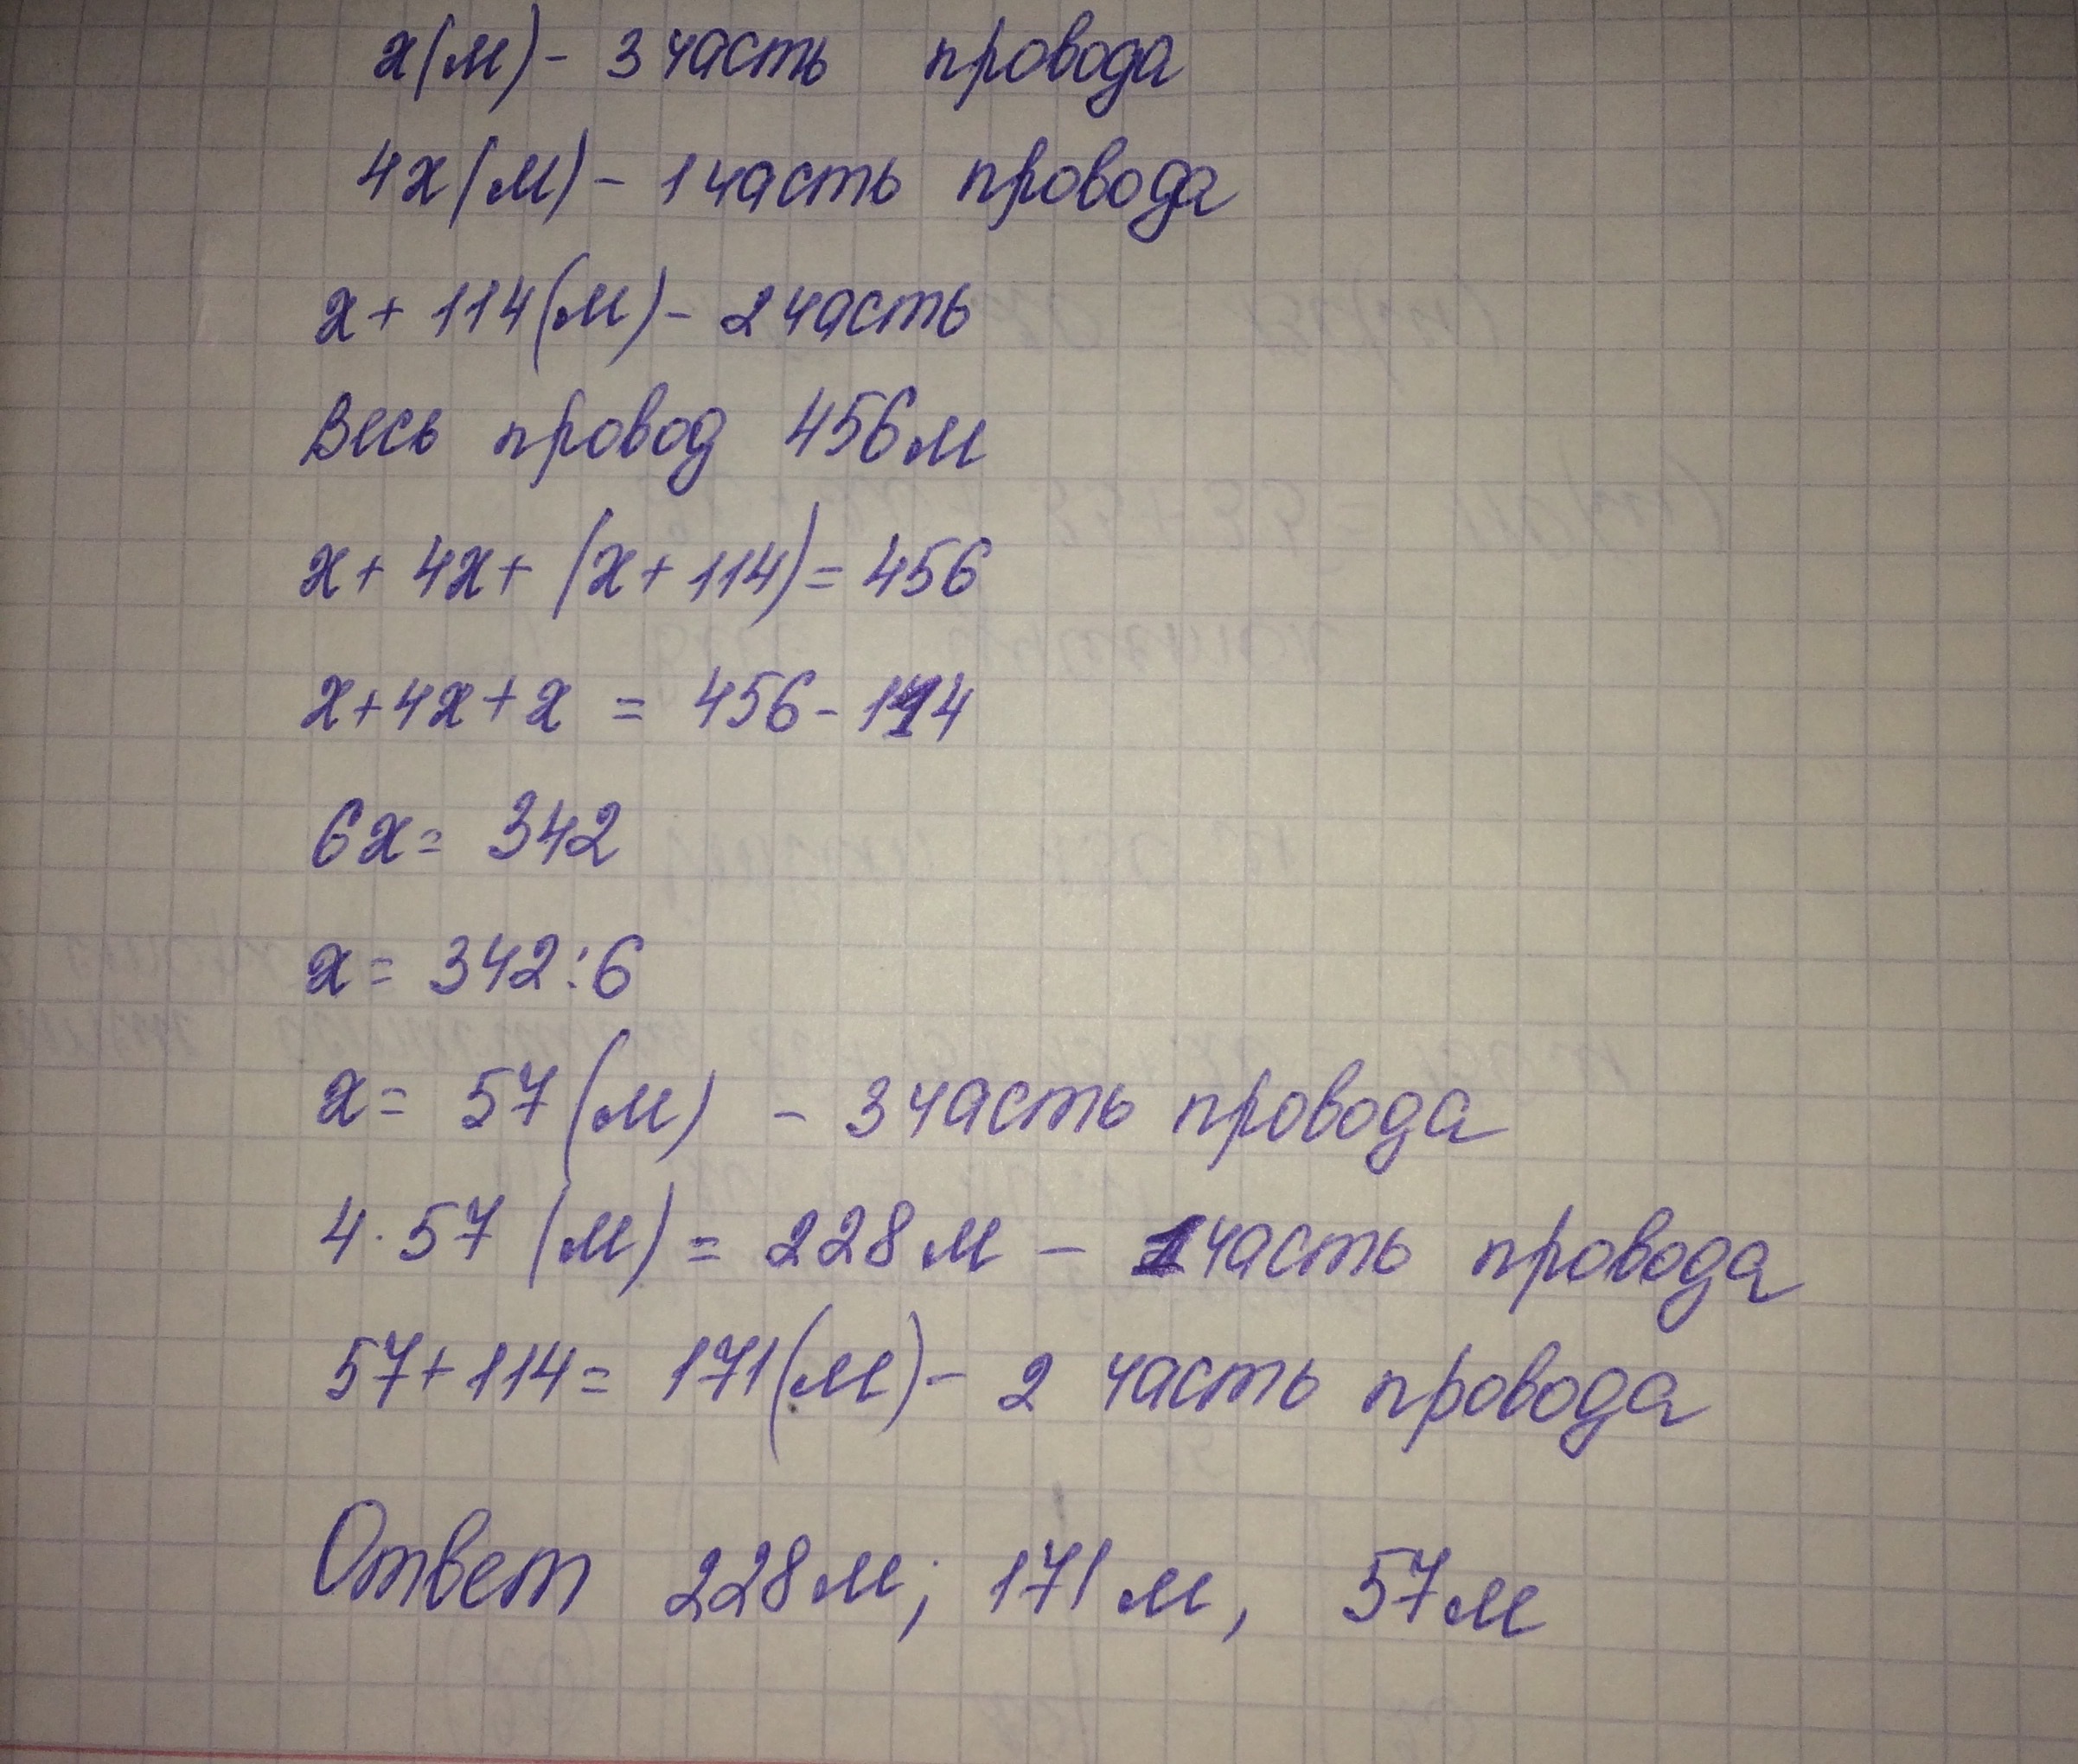 x(м) - 3 часть провода
4x(м) - 1 часть провода
x + 114(м) - 2 часть
Весь провод 456м
x + 4x + (x + 114) = 456
x + 4x + x = 456 - 114
6x = 342
x = 342 : 6
x = 57(м) - 3 часть провода
4 · 57 (м) = 228 м - 1 часть провода
57 + 114 = 171(м) - 2 часть провода
Ответ 228м; 171м, 57м